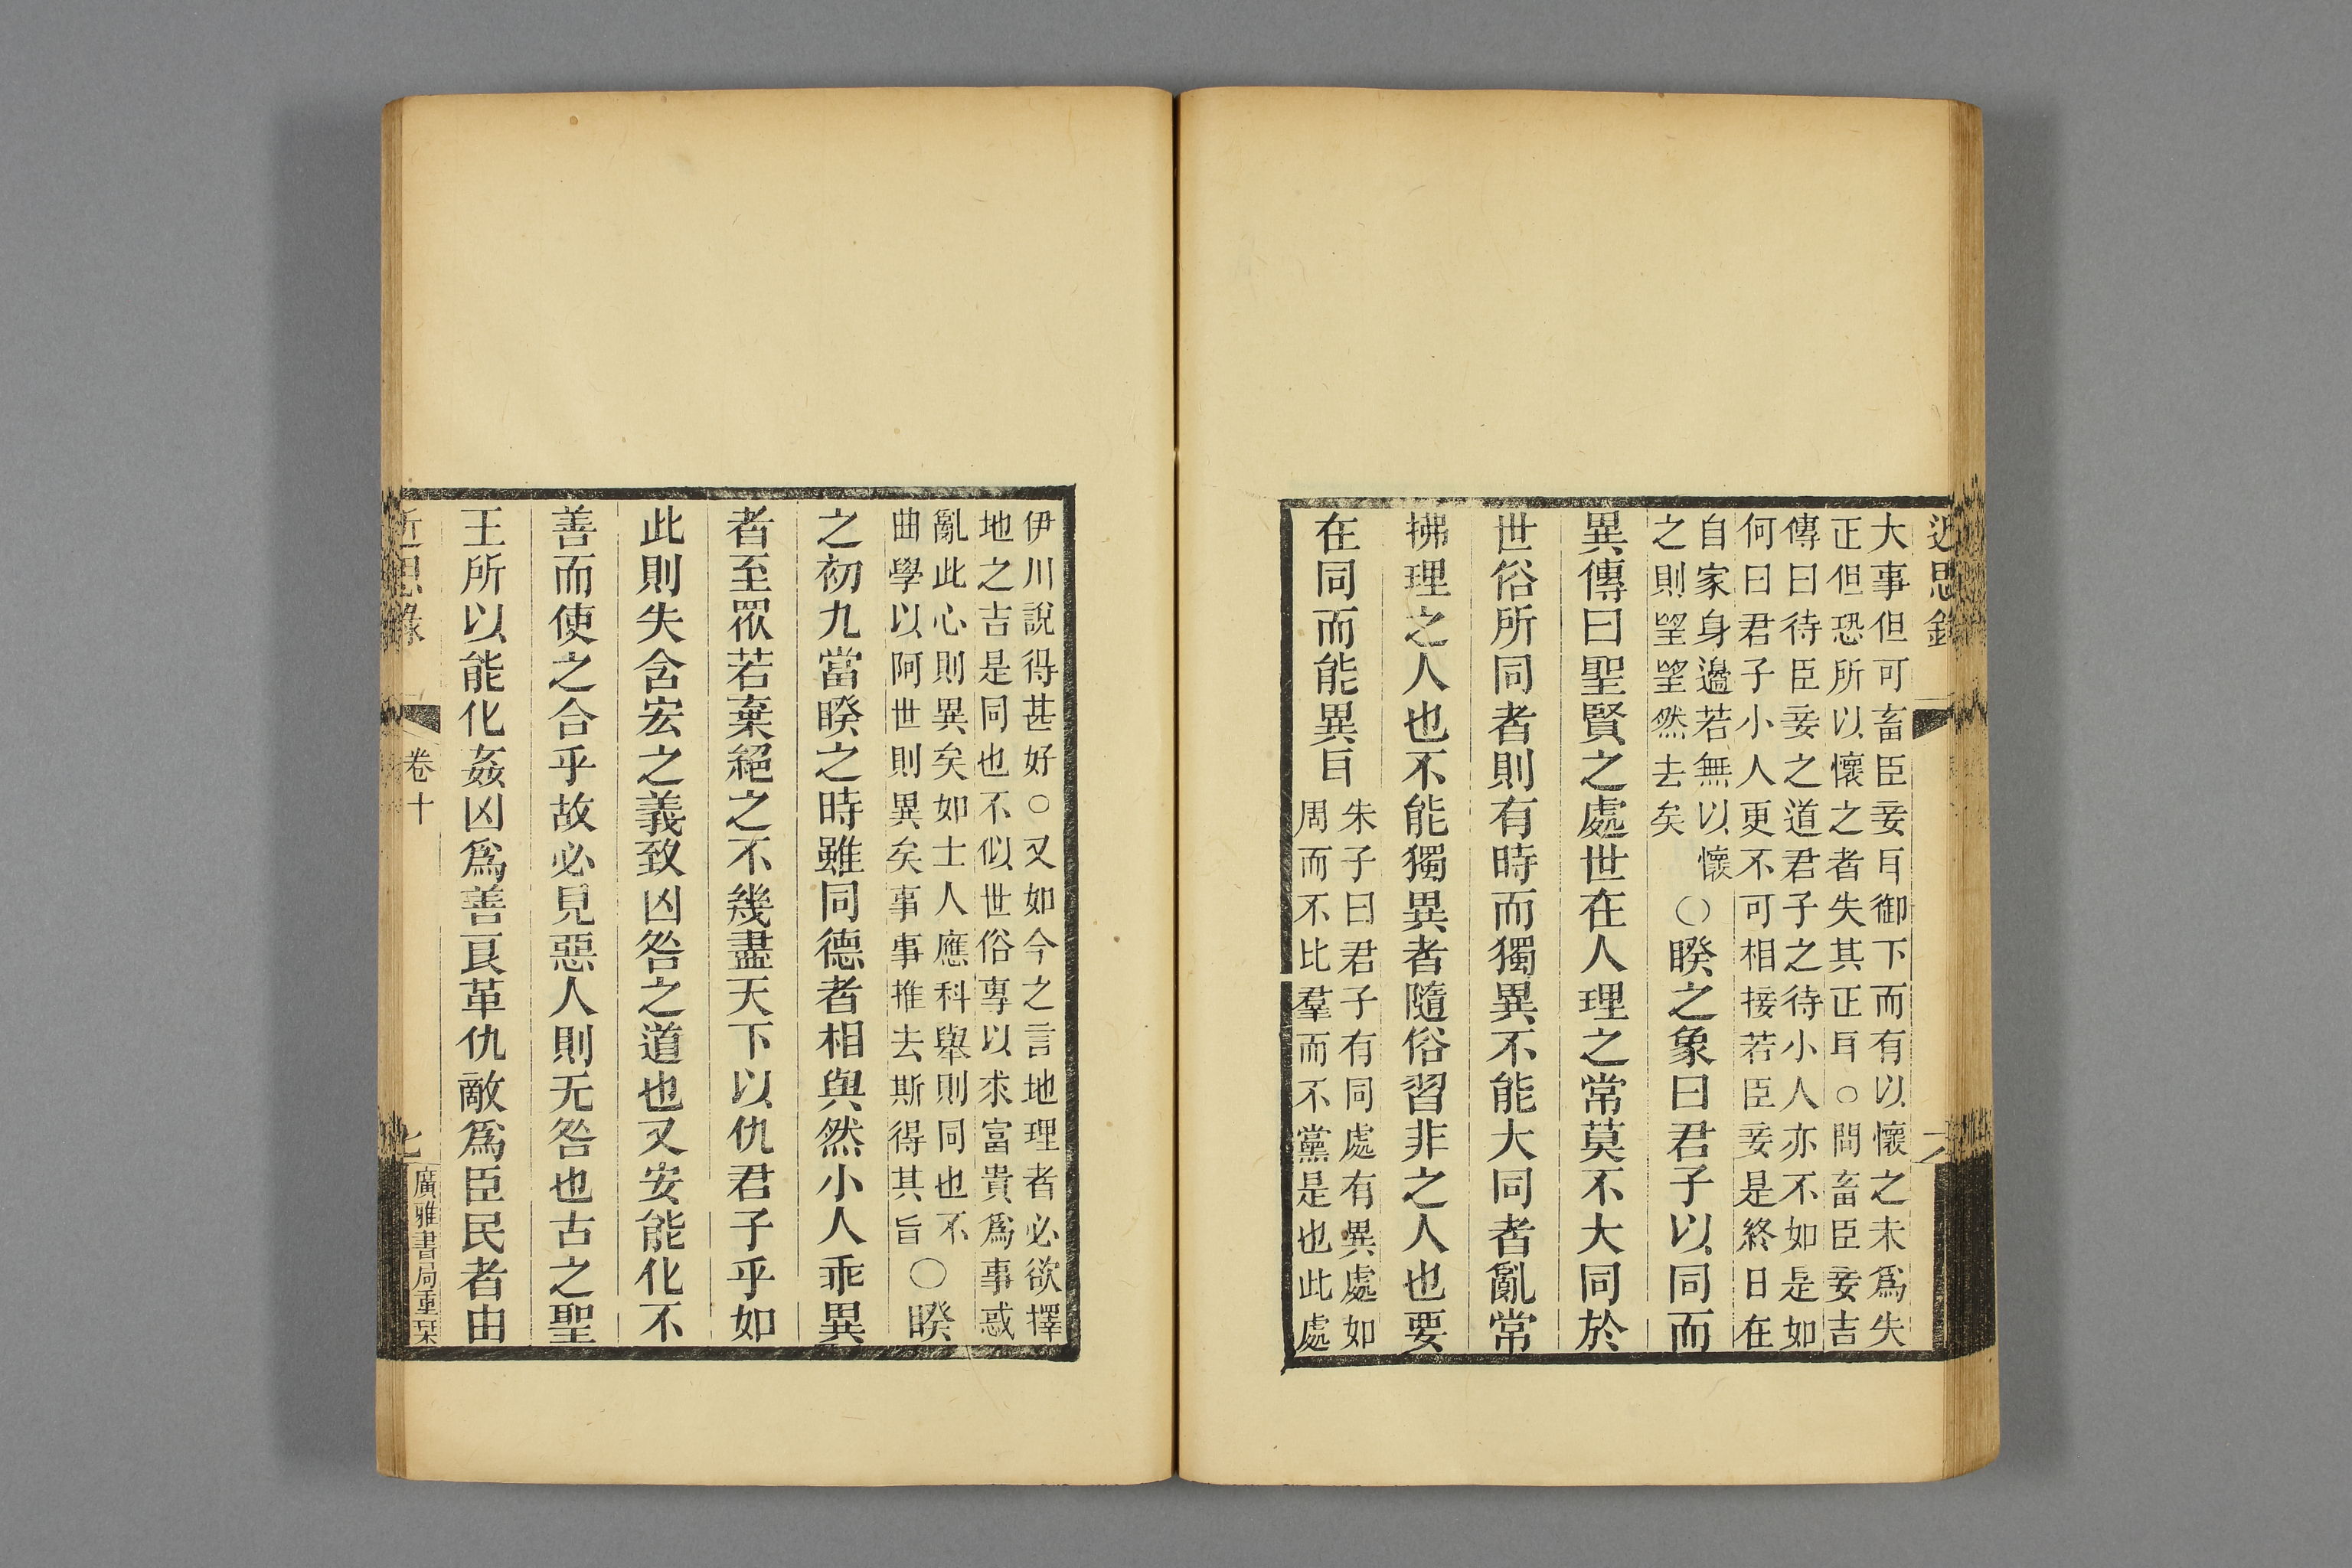 近思錄
六
大事但可畜臣妾耳御下而有以懷之未爲失
正但恐所以懷之者失其正耳○問畜臣妾吉
傳曰待臣妾之道君子之待小人亦不如是如
何曰君子小人更不可相接若臣妾是終日在
自家身邉若無以懷
之則望望然去矣
○睽之象曰君子以同而
異傳曰聖賢之處世在人理之常莫不大同於
世俗所同者則有時而獨異不能大同者亂常
拂理之人也不能獨異者隨俗習非之人也要
在同而能異旨
朱子曰君子有同處有異處如
周而不比羣而不黨是也此處
伊川說得甚好○又如今之言地理者必欲擇
地之吉是同也不似世俗專以求富貴爲事惑
亂此心則異矣如士人應科舉則同也不
曲學以阿世則異矣事事推去斯得其旨
○睽
之初九當睽之時雖同德者相與然小人乖異
者至眾若棄絕之不幾盡天下以仇君子乎如
此則失含宏之義致凶咎之道也又安能化不
善而使之合乎故必見惡人則无咎也古之聖
王所以能化姦凶爲善良革仇敵爲臣民者由
近思錄
卷十
七
廣雅書局重栞